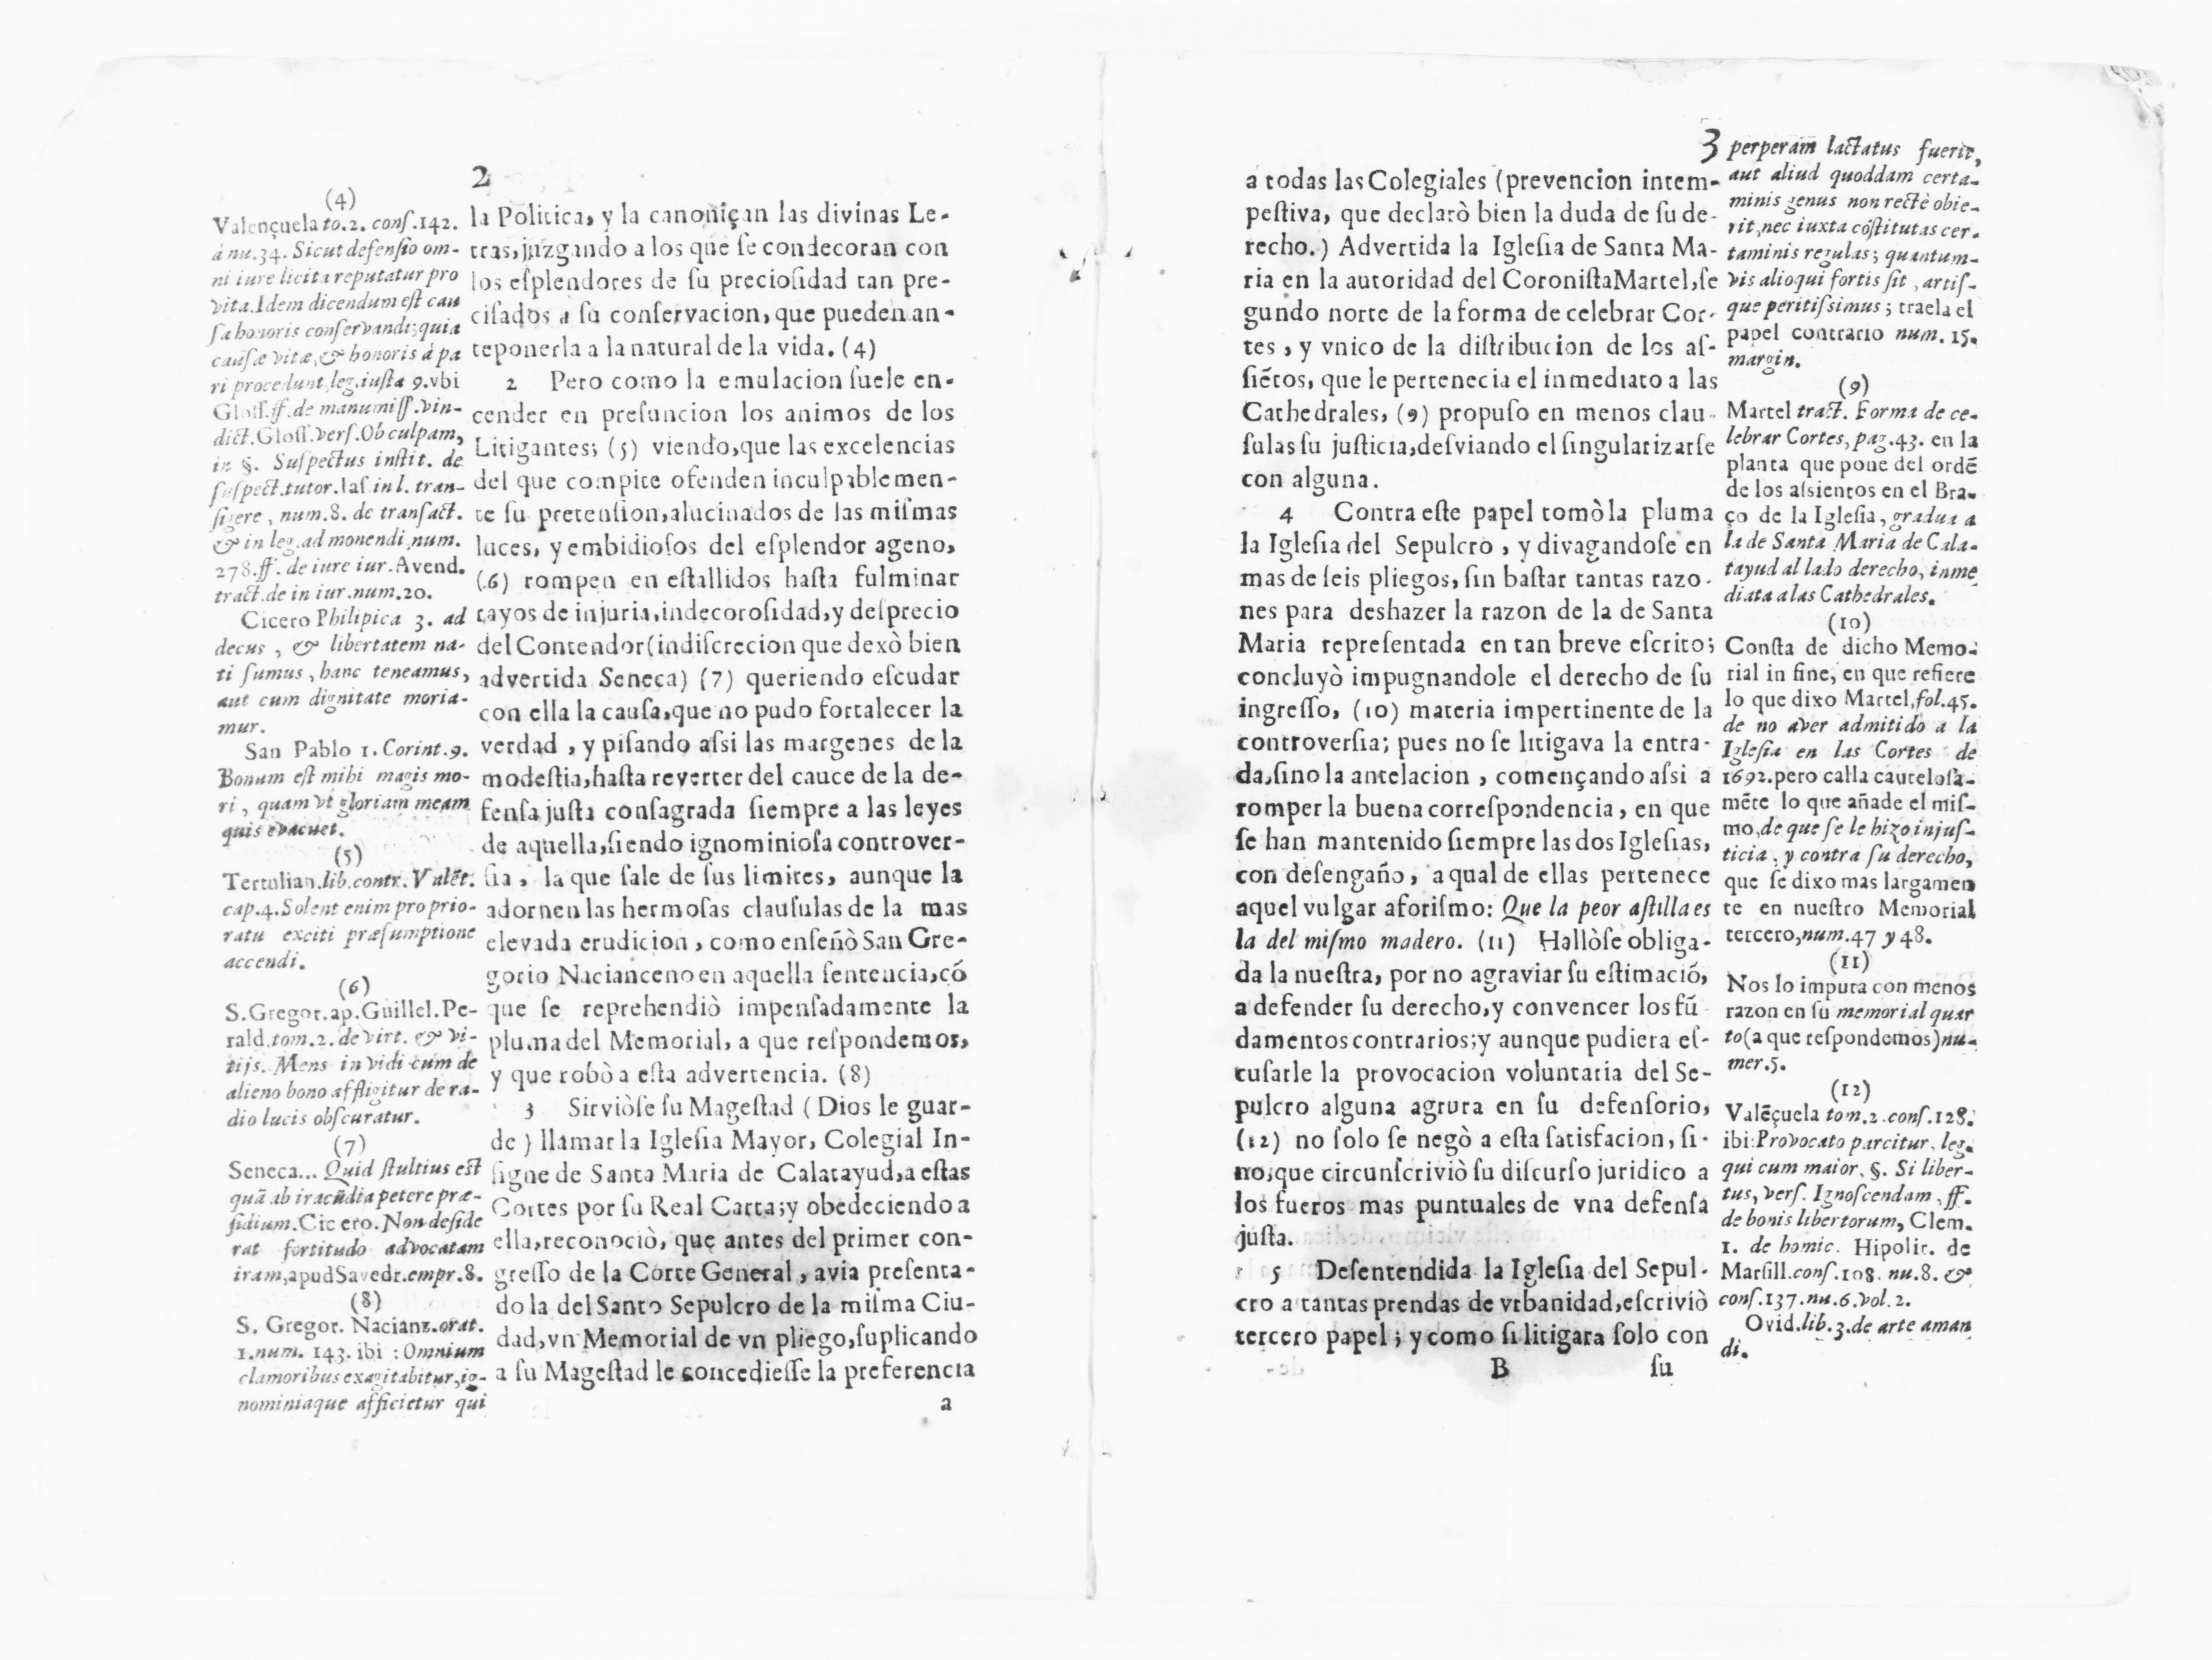 2
la Politica, y la canoniçan las divinas Le-
tras, juzgando a los que se condecoran con
los esplendores de su preciosidad tan pre-
cisados a su conservacion, que pueden an-
teponerla a la natural de la vida. (4)
2 Pero como la emulacion suele en-
cender en presuncion los animos de los
Litigantes; (5) viendo, que las excelencias
del que compite ofenden inculpablemen-
te su pretension, alucinados de las mismas
luces, y embidiosos del esplendor ageno,
(6) rompen en estallidos hasta fulminar
rayos de injuria, indecorosidad, y desprecio
del Contendor (indiscrecion que dexò bien
advertida Seneca) (7) queriendo escudar
con ella la causa, que no pudo fortalecer la
verdad, y pisando assi las margenes de la
modestia, hasta reverter del cauce de la de-
fensa justa consagrada siempre a las leyes
de aquella, siendo ignominiosa controver-
sia, la que sale de sus limites, aunque la
adornen las hermosas clausulas de la mas
elevada erudicion, como enseñò San Gre-
gorio Nacianceno en aquella sentencia, cõ
que se reprehendiò impensadamente la
pluma del Memorial, a que respondemos,
y que robò a esta advertencia. (8)
3 Sirviòse su Magestad (Dios le guar-
de) llamar la Iglesia Mayor, Colegial In-
signe de Santa Maria de Calatayud, a estas
Cortes por su Real Carta; y obedeciendo a
ella, reconociò, que antes del primer con-
gresso de la Corte General, avia presenta-
do la del Santo Sepulcro de la misma Ciu-
dad, vn Memorial de vn pliego, suplicando
a su Magestad le concediesse la preferencia
a
(4)
Valençuela to. 2. cons. 142.
à nu. 34. Sicut defensio om-
ni iure licita reputatur pro
vita. Idem dicendum est cau
sa honoris conservandi; quia
causæ vitæ, & honoris à pa
ri procedunt, leg. iusta 9. vbi
Gloss. ff. de manumiss. vin-
dict. Gloss. vers. Ob culpam,
in §. Suspectus instit. de
suspect. tutor. Ias. in l. tran-
sigere, num. 8. de transact.
& in leg. admonendi, num.
278. ff. de iure iur. Avend.
tract. de in iur. num. 20.
Cicero Philipica 3. ad
decus, & libertatem na-
ti sumus, hanc teneamus,
aut cum dignitate moria-
mur.
San Pablo 1. Corint. 9.
Bonum est mihi magis mo-
ri, quam vt gloriam meam
quis evacuet.
(5)
Tertulian. lib. contr. Valẽt.
cap. 4. Solent enim pro prio-
ratu exciti præsumptione
accendi.
(6)
S. Gregor. ap. Guillel. Pe-
rald. tom. 2. de virt. & vi-
tijs. Mens invidi cum de
alieno bono affligitur de ra-
dio lucis obscuratur.
(7)
Seneca... Quid stultius est
quã ab iracũdia petere præ-
sidium. Cicero. Non deside
rat fortitudo advocatam
iram, apud Savedr. empr. 8.
(8)
S. Gregor. Nacianz. orat.
1. num. 143. ibi: Omnium
clamoribus exagitabitur, ig-
nominiaque afficietur qui
3
a todas las Colegiales (prevencion intem-
pestiva, que declarò bien la duda de su de-
recho.) Advertida la Iglesia de Santa Ma-
ria en la autoridad del Coronista Martel, se
gundo norte de la forma de celebrar Cor-
tes, y vnico de la distribucion de los as-
siẽtos, que le pertenecia el inmediato a las
Cathedrales, (9) propuso en menos clau-
sulas su justicia, desviando el singularizarse
con alguna.
4 Contra este papel tomò la pluma
la Iglesia del Sepulcro, y divagandose en
mas de seis pliegos, sin bastar tantas razo-
nes para deshazer la razon de la de Santa
Maria representada en tan breve escrito;
concluyò impugnandole el derecho de su
ingresso, (10) materia impertinente de la
controversia; pues no se litigava la entra-
da, sino la antelacion, començando assi a
romper la buena correspondencia, en que
se han mantenido siempre las dos Iglesias,
con desengaño, a qual de ellas pertenece
aquel vulgar aforismo: Que la peor astilla es
la del mismo madero. (11) Hallòse obliga-
da la nuestra, por no agraviar su estimaciõ,
a defender su derecho, y convencer los fũ
damentos contrarios; y aunque pudiera es-
cusarle la provocacion voluntaria del Se-
pulcro alguna agrura en su defensorio,
(12) no solo se negò a esta satisfacion, si-
no, que circunscriviò su discurso juridico a
los fueros mas puntuales de vna defensa
justa.
5 Desentendida la Iglesia del Sepul-
cro a tantas prendas de vrbanidad, escriviò
tercero papel; y como si litigara solo con
B su
perperam lactatus fuerit,
aut aliud quoddam certa-
minis genus non rectè obie-
rit, nec iuxta cõstitutas cer-
taminis regulas; quantum-
vis alioqui fortis sit, artis-
que peritissimus; traela el
papel contrario num. 15.
margin.
(9)
Martel tract. Forma de ce-
lebrar Cortes, pag. 43. en la
planta que pone del ordẽ
de los assientos en el Bra-
ço de la Iglesia, gradua a
la de Santa Maria de Cala-
tayud al lado derecho, inme
diata a las Cathedrales.
(10)
Consta de dicho Memo-
rial in fine, en que refiere
lo que dixo Martel, fol. 45.
de no aver admitido a la
Iglesia en las Cortes de
1692. pero calla cautelosa-
mẽte lo que añade el mis-
mo, de que se le hizo injus-
ticia, y contra su derecho,
que se dixo mas largamen
te en nuestro Memorial
tercero, num. 47 y 48.
(11)
Nos lo imputa con menos
razon en su memorial quar
to (a que respondemos) nu-
mer. 5.
(12)
Valẽçuela tom. 2. cons. 128.
ibi: Provocato parcitur, leg.
qui cum maior, §. Si liber-
tus, vers. Ignoscendam, ff.
de bonis libertorum, Clem.
1. de homic. Hipolit. de
Marsill. cons. 108. nu. 8. &
cons. 137. nu. 6. vol. 2.
Ovid. lib. 3. de arte aman
di.